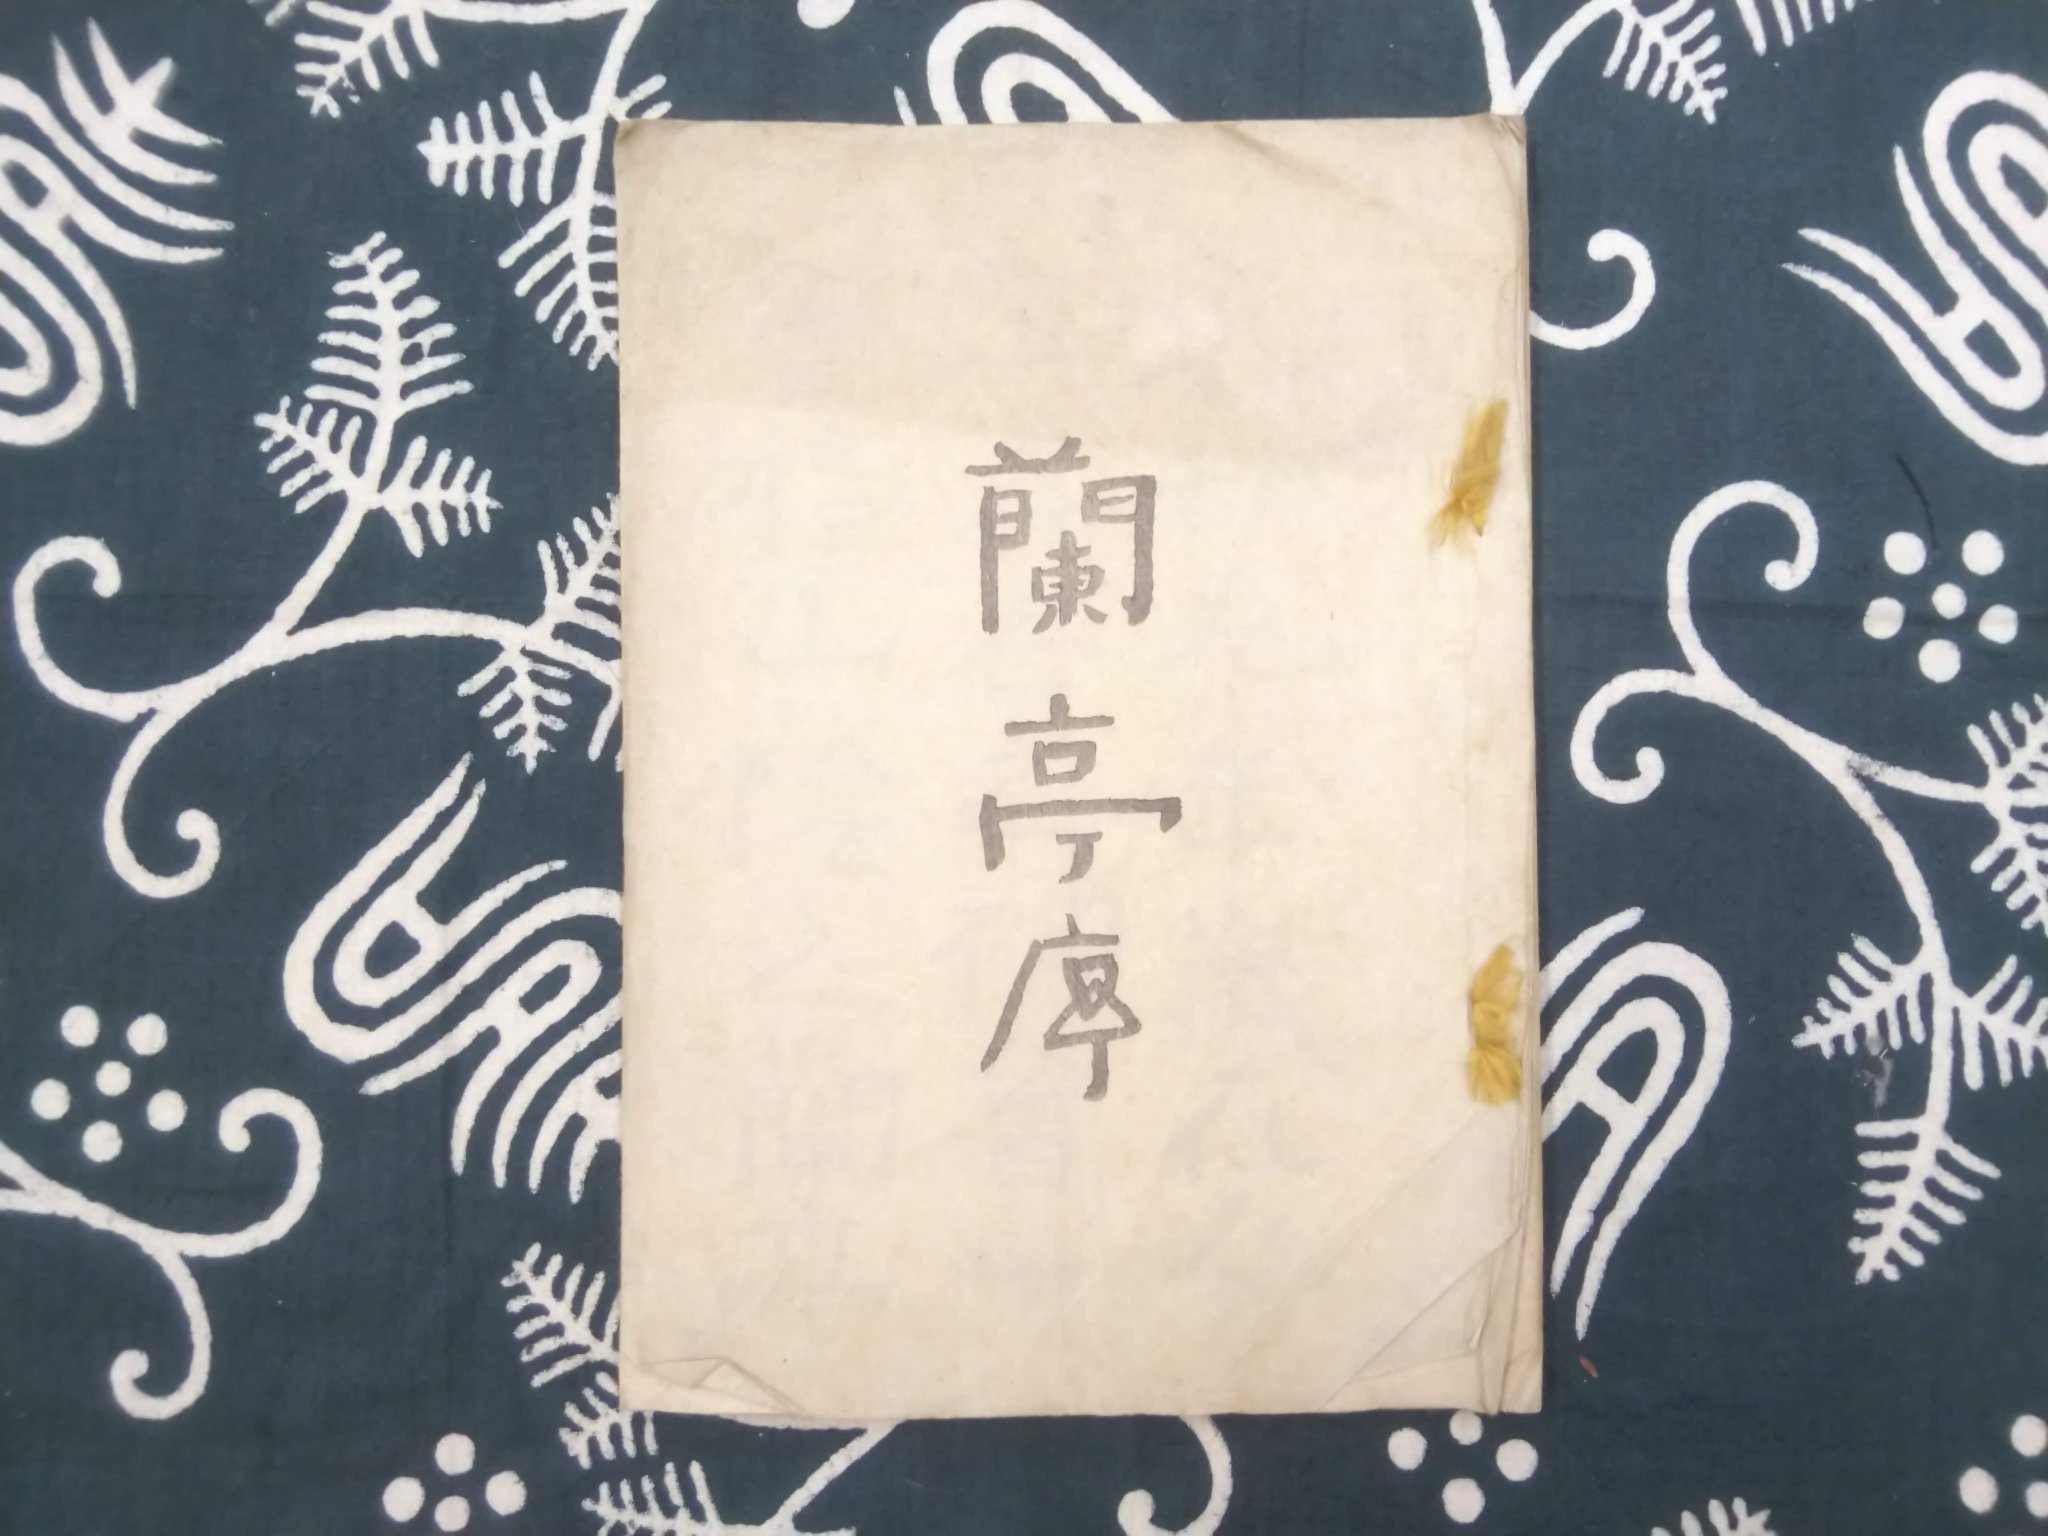 蘭亭序